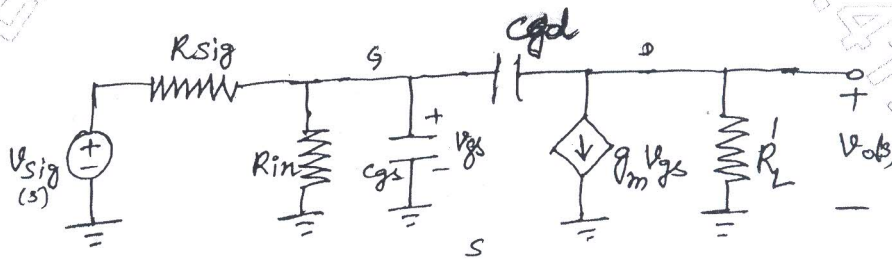 Cgd
Rsig
G
D
+
-
Vsig
(s)
Rin
Cgs
+
Vgs
-
gmVgs
R'L
+
Vo(s)
-
S